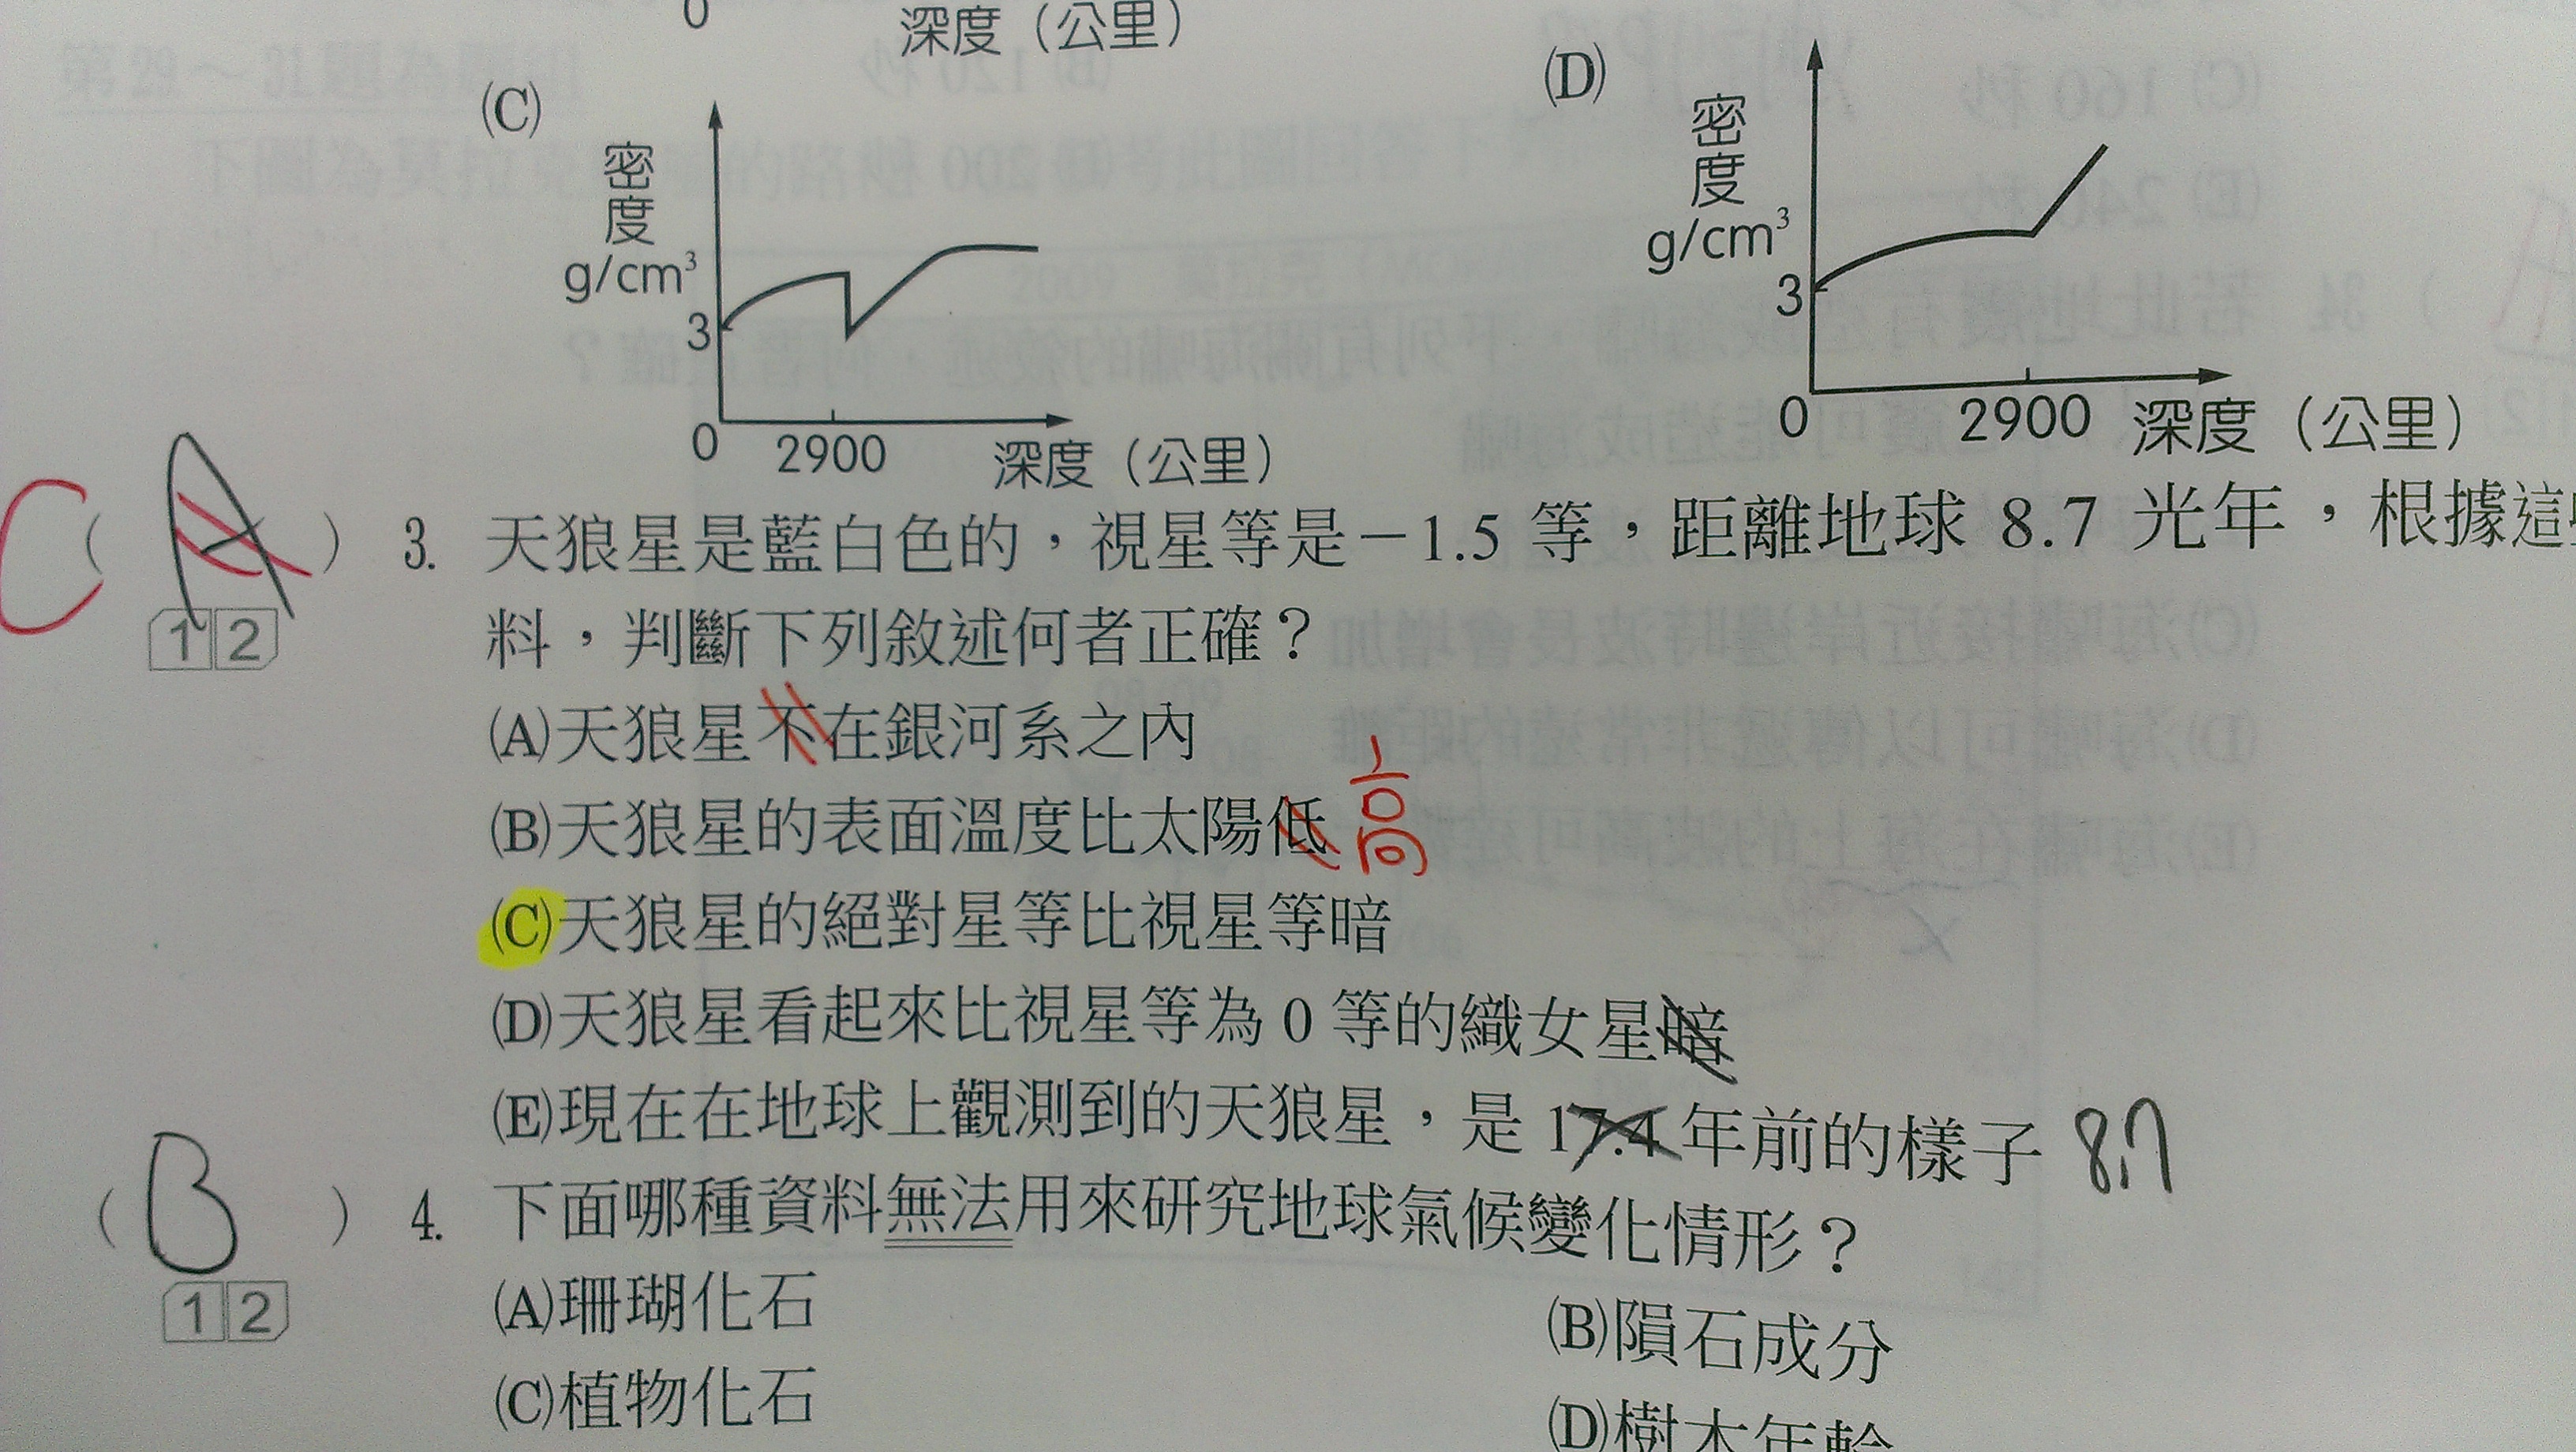 0
深度（公里）
(C)
密度
g/cm³
3
0
2900
深度（公里）
(D)
密度
g/cm³
3
0
2900
深度（公里）
C
（ A ） 3. 天狼星是藍白色的，視星等是－1.5 等，距離地球 8.7 光年，根據這
1 2
料，判斷下列敘述何者正確？
(A)天狼星不在銀河系之內
(B)天狼星的表面溫度比太陽低 高
(C)天狼星的絕對星等比視星等暗
(D)天狼星看起來比視星等為 0 等的織女星暗
(E)現在在地球上觀測到的天狼星，是 17.4 年前的樣子 8.7
（ B ） 4. 下面哪種資料無法用來研究地球氣候變化情形？
1 2
(A)珊瑚化石
(B)隕石成分
(C)植物化石
(D)樹木年輪